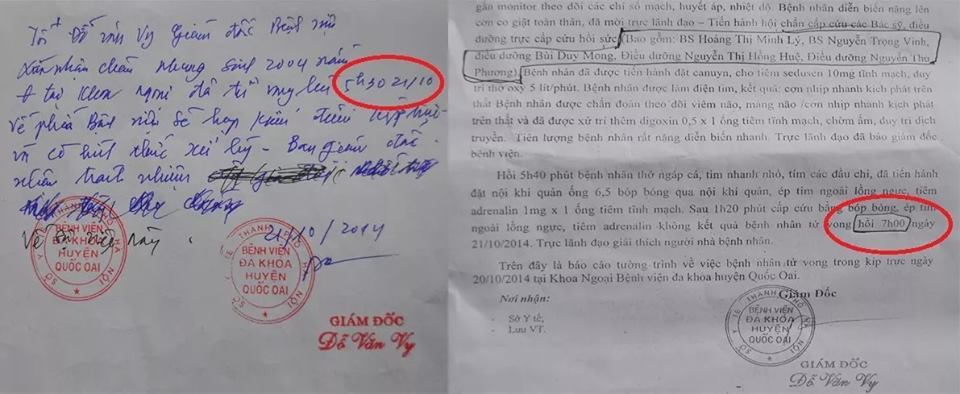 Tôi Đỗ Văn Vy Giám đốc Bệnh viện
Xác nhận cháu nhung sinh 2004 nằm
tại khoa ngoại đã tử vong lúc 5h30 21/10
Về phía Bệnh viện sẽ họp kiểm điểm
và có hình thức xử lý - Ban giám đốc
nhận trách nhiệm
Về
này
21/10/2014
SỞ Y TẾ THÀNH PHỐ HÀ NỘI
BỆNH VIỆN
ĐA KHOA
HUYỆN
QUỐC OAI
BỆNH VIỆN
ĐA KHOA
HUYỆN
QUỐC OAI
GIÁM ĐỐC
Đỗ Văn Vy
gắn monitor theo dõi các chỉ số mạch, huyết áp, nhiệt độ. Bệnh nhân diễn biến nặng lên
cơn co giật toàn thân, đã mời trực lãnh đạo – Tiến hành hội chẩn cấp cứu các Bác sỹ, điều
dưỡng trực cấp cứu hồi sức (Bao gồm: BS Hoàng Thị Minh Lý, BS Nguyễn Trọng Vinh,
điều dưỡng Bùi Duy Mong, Điều dưỡng Nguyễn Thị Hồng Huệ, Điều dưỡng Nguyễn Thu
Phương). Bệnh nhân đã được tiến hành đặt canuyn, cho tiêm seduxen 10mg tĩnh mạch, duy
trì thở oxy 5 lít/phút. Bệnh nhân được làm điện tim, kết quả: cơn nhịp nhanh kịch phát trên
thất Bệnh nhân được chẩn đoán theo dõi viêm não, màng não /cơn nhịp nhanh kịch phát
trên thất và đã được xử trí thêm digoxin 0,5 x 1 ống tiêm tĩnh mạch, chờm ấm, duy trì dịch
truyền. Tiên lượng bệnh nhân rất nặng diễn biến nhanh. Trực lãnh đạo đã báo giám đốc
bệnh viện.
Hồi 5h40 phút bệnh nhân thở ngáp cá, tim nhanh nhỏ, tím các đầu chi, đã tiến hành
đặt nội khí quản ống 6,5 bóp bóng qua nội khí quản, ép tim ngoài lồng ngực, tiêm
adrenalin 1mg x 1 ống tiêm tĩnh mạch. Sau 1h20 phút cấp cứu bằng bóp bóng, ép tim
ngoài lồng ngực, tiêm adrenalin không kết quả bệnh nhân tử vong hồi 7h00 ngày
21/10/2014. Trực lãnh đạo giải thích người nhà bệnh nhân.
Trên đây là báo cáo tường trình về việc bệnh nhân tử vong trong kíp trực ngày
20/10/2014 tại Khoa Ngoại Bệnh viện đa khoa huyện Quốc Oai.
Nơi nhận:
- Sở Y tế;
- Lưu VT.
Giám Đốc
BỆNH VIỆN
ĐA KHOA
HUYỆN
QUỐC OAI
GIÁM ĐỐC
Đỗ Văn Vy